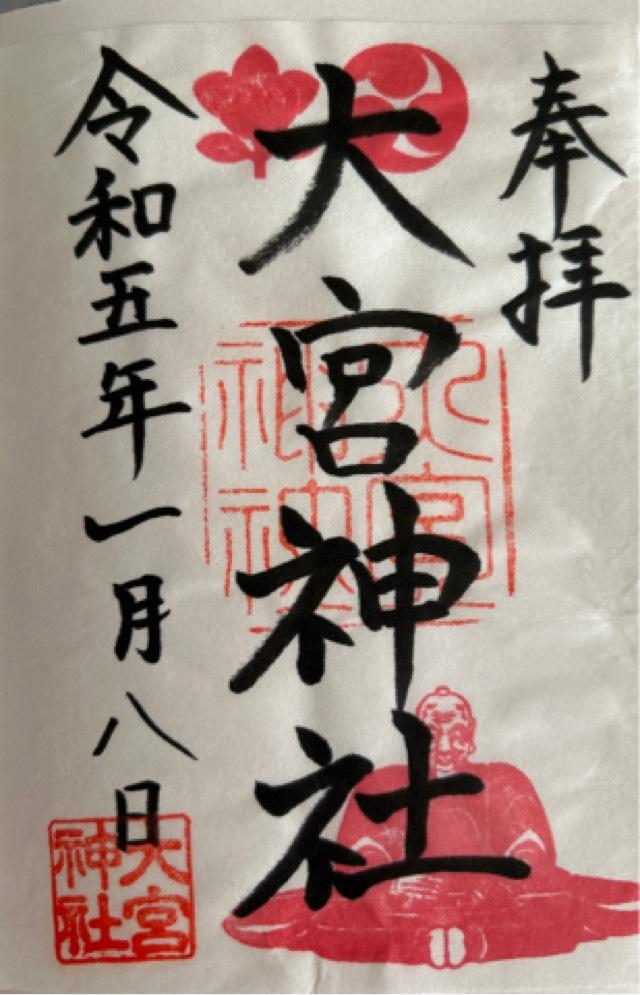 奉拝
大宮神社
令和五年一月八日
大宮
神社